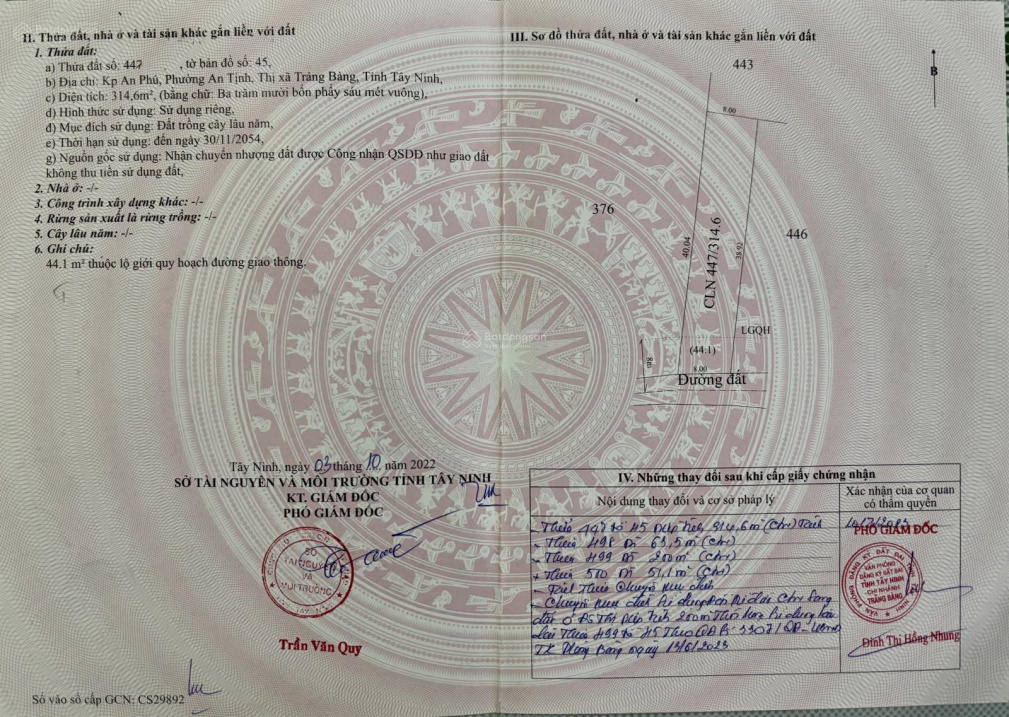 II. Thửa đất, nhà ở và tài sản khác gắn liền với đất
1. Thửa đất:
a) Thửa đất số: 447 , tờ bản đồ số: 45,
b) Địa chỉ: Kp An Phú, Phường An Tịnh, Thị xã Trảng Bàng, Tỉnh Tây Ninh,
c) Diện tích: 314,6m², (bằng chữ: Ba trăm mười bốn phẩy sáu mét vuông),
d) Hình thức sử dụng: Sử dụng riêng,
đ) Mục đích sử dụng: Đất trồng cây lâu năm,
e) Thời hạn sử dụng: đến ngày 30/11/2054,
g) Nguồn gốc sử dụng: Nhận chuyển nhượng đất được Công nhận QSDĐ như giao đất
không thu tiền sử dụng đất,
2. Nhà ở: -/-
3. Công trình xây dựng khác: -/-
4. Rừng sản xuất là rừng trồng: -/-
5. Cây lâu năm: -/-
6. Ghi chú:
44.1 m² thuộc lộ giới quy hoạch đường giao thông.
Tây Ninh, ngày 03 tháng 10 năm 2022
SỞ TÀI NGUYÊN VÀ MÔI TRƯỜNG TỈNH TÂY NINH
KT. GIÁM ĐỐC
PHÓ GIÁM ĐỐC
SỞ
TÀI NGUYÊN
VÀ
MÔI TRƯỜNG
Trần Văn Quy
Số vào sổ cấp GCN: CS29892
III. Sơ đồ thửa đất, nhà ở và tài sản khác gắn liền với đất
443
B
8.00
376
446
40.04
CLN 447/314.6
38.92
LGQH
(44.1)
8.00
Đường đất
Batdongsan
IV. Những thay đổi sau khi cấp giấy chứng nhận
Nội dung thay đổi và cơ sở pháp lý
Xác nhận của cơ quan
có thẩm quyền
- Thửa 447 tờ 45 diện tích 314,6m² (CLN) tách
- Thửa 498 DT 63,5m² (CLN)
- Thửa 499 DT 200m² (CLN)
+ Thửa 500 DT 51,1m² (CLN)
PHÓ GIÁM ĐỐC
VĂN PHÒNG
ĐĂNG KÝ ĐẤT ĐAI
TỈNH TÂY NINH
CHI NHÁNH
TRẢNG BÀNG
Đinh Thị Hồng Nhung
ngày 13/6/2023